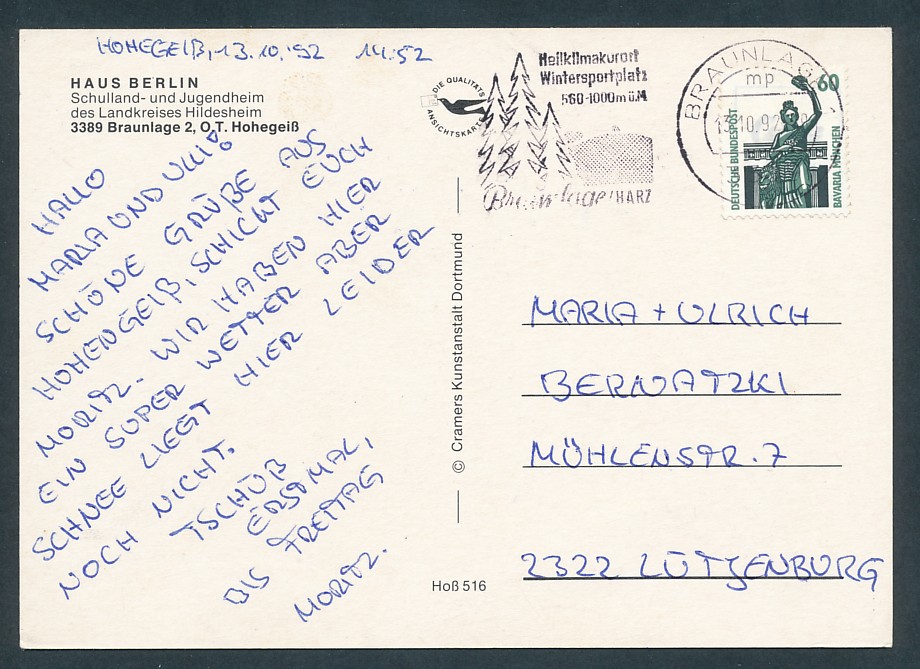 HOHEGEIß, 13.10.'92 14:52
HAUS BERLIN
Schulland- und Jugendheim
des Landkreises Hildesheim
3389 Braunlage 2, O.T. Hohegeiß
HALLO
MARIA UND ULLI!
SCHÖNE GRÜßE AUS
HOHENGEIß, SCHICKT EUCH
MORITZ. WIR HABEN HIER
EIN SUPER WETTER ABER
SCHNEE LIEGT HIER LEIDER
NOCH NICHT.
TSCHÜß
ERSTMAL,
BIS FREITAG
MORITZ.
DIE QUALITÄTS
ANSICHTSKARTE
Heilklimakurort
Wintersportplatz
560-1000m ü.M
Braunlage/HARZ
BRAUNLAGE
mp
13.10.92
60
DEUTSCHE BUNDESPOST
BAVARIA MÜNCHEN
© Cramers Kunstanstalt Dortmund
Hoß 516
MARIA + ULRICH
BERNATZKI
MÜHLENSTR. 7
2322 LÜTJENBURG